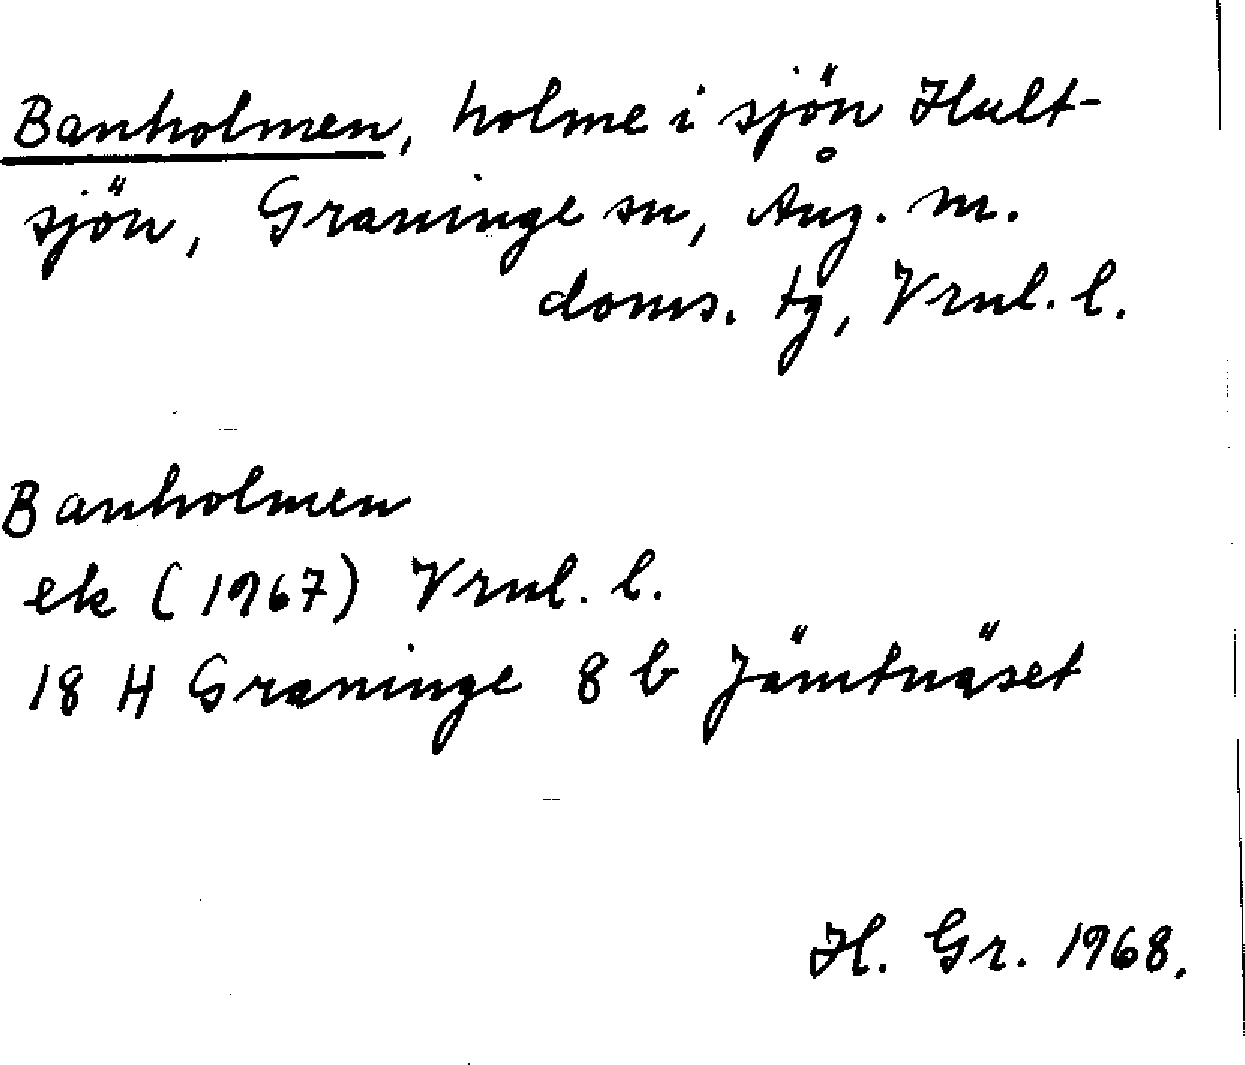 Banholmen, holme i sjön Hult-
sjön, Graninge sn, Ång. m.
doms. tg, Vrnl. l.
Banholmen
ek (1967) Vrnl. l.
18 H Graninge 8 b Jämtnäset
H. Gr. 1968.